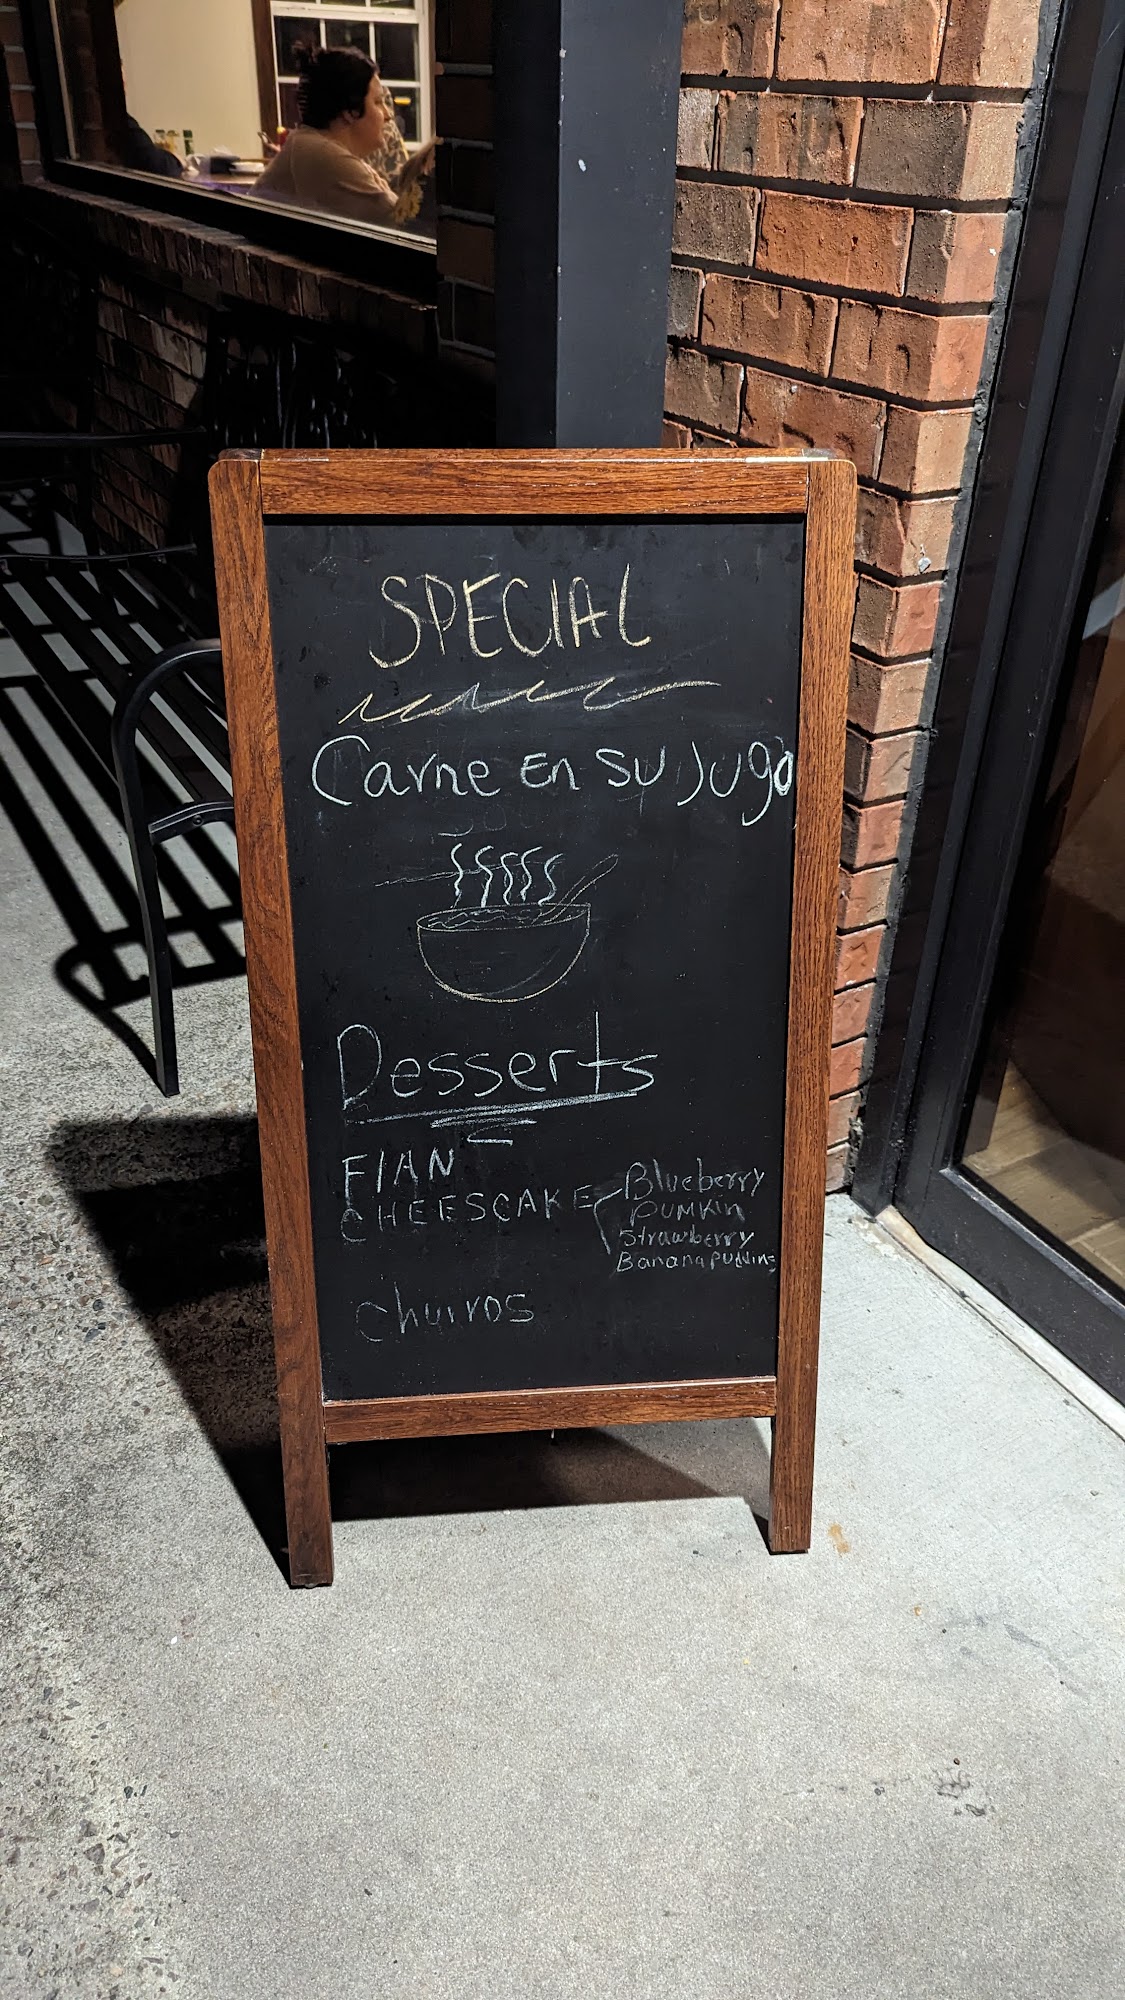 SPECIAL
Carne En su Jugo
Desserts
FlAN
CHEESCAKE
Blueberry
PUMKin
Strawberry
Banana PUdding
Churros